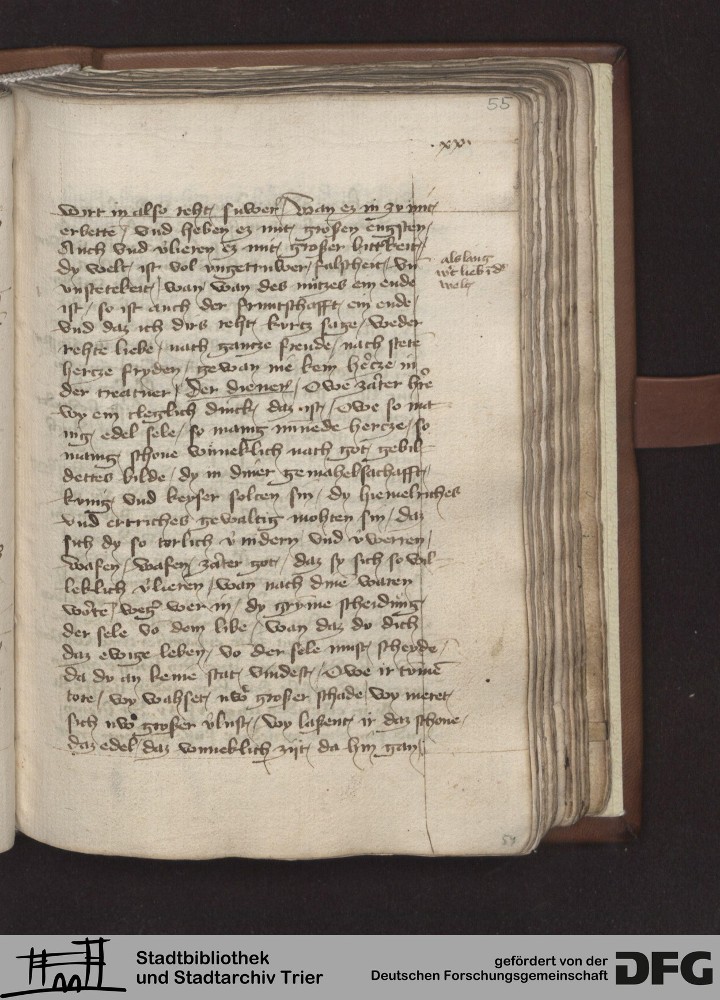 55
.xx.
wirt in also reht suwer / wan ez in zÿ mit
erbette / vnd heben ez mit grosen engsten /
Auch vnd v̾lieren ez mit groser bitkeit /
dy welt ist vol vngetruwer falscheit / vn̄
vnstetekeit / wan wan des nutzes ein ende
ist / so ist auch der fruntschafft ein ende /
vnd daz ich dirs reht kurtz sage / weder
rehte liebe / nach gantze freude / nach stete
hercze fryden / gewan nie kein hercze in
der creatuer / Der diener / Owe zarter h̾re
wy ein cleglich dinck daz ist / Owe so ma
nig edel sele / so manig minnede hercze / so
manig schone wunneklich nach got gebil
dettes bilde / dy in diner gemahelschafft /
kunig vnd keyser solten sin / dy hiemelriches
vnd ertriches gewaltig mohten sin / daz
sich dy so torlich v̾nidern vnd v̾werren /
wafen / wafen zarter got / daz sy sich so wil
leklich v̾lieren / wan nach dine waren
worte weg̾ wer in / dy gryme scheidung
der sele vō dem libe / wan daz du dich
daz ewige leben / vō der sele must scheyde /
da du an keine stat vindest / Owe ir tumē
tore / wy wahset uw̾ groser schade / wy meret
sich uw̾ groser v̾lust / wy lasent ir daz schone /
daz edel / daz wunneklich zijt da hin gan /
als lang
54
Stadtbibliothek
und Stadtarchiv Trier
gefördert von der
Deutschen Forschungsgemeinschaft
DFG